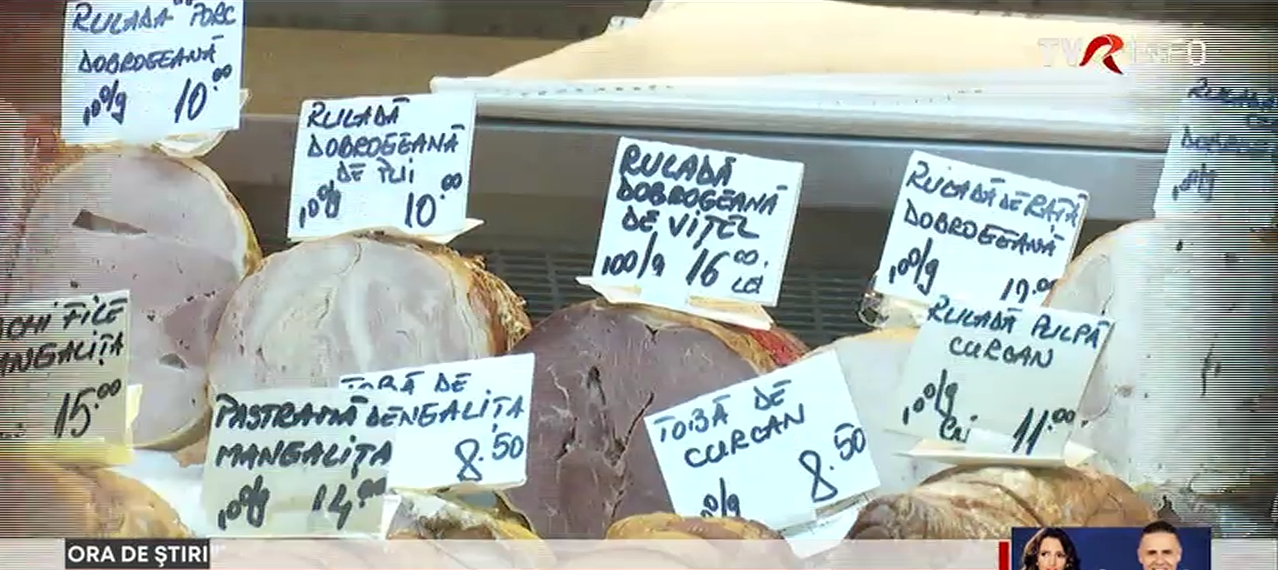 RULADĂ PORC
DOBROGEANĂ
100/g 10.00
RULADĂ
DOBROGEANĂ
DE PUI
100/g 10.00
RULADĂ
DOBROGEANĂ
DE VIȚEL
100/g 16.00
LEI
RULADĂ DE RAȚĂ
DOBROGEANĂ
100/g
TVR INFO
RULADĂ PULPĂ
CURCAN
100/g
Lei 11.00
FILE
15.00
TOBĂ DE
8.50
PASTRAMĂ DE
MANGALIȚA
100/g 14.00
TOBĂ DE
CURCAN
8.50
ORA DE ȘTIRI